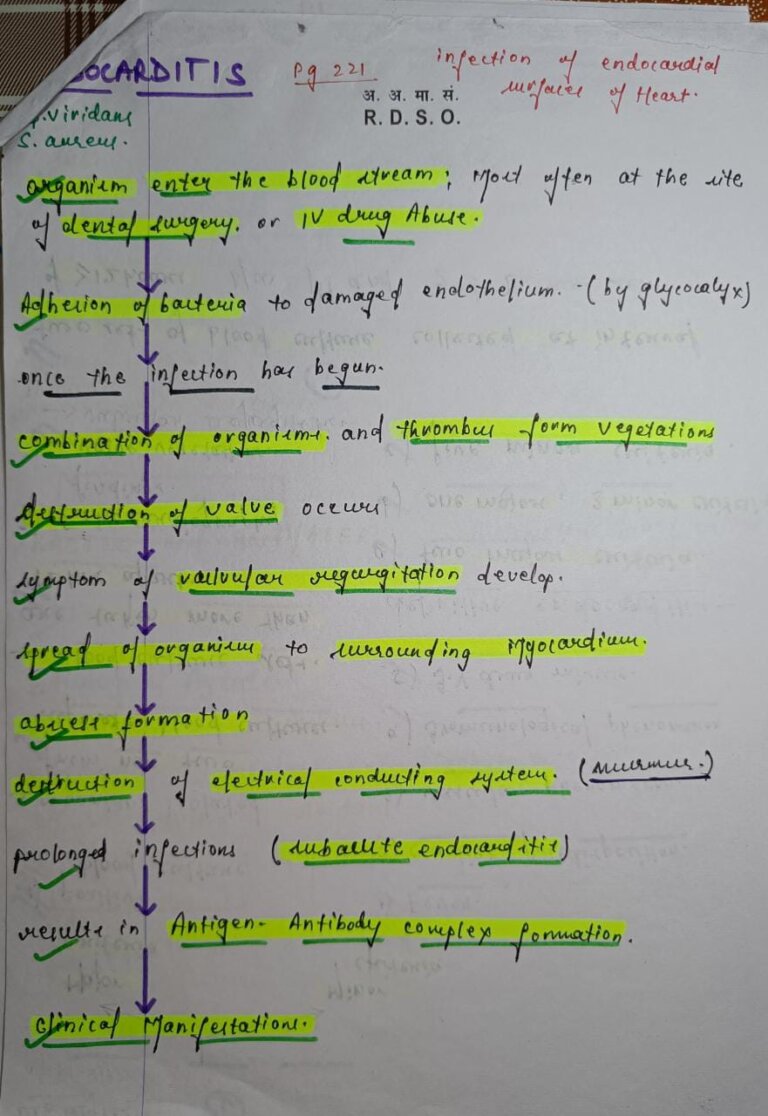 OCARDITIS Pg 221 infection of endocardial
surfaces of Heart.
अ. अ. मा. सं.
R. D. S. O.
.viridans
S. aureus.
organism enter the blood stream; Most often at the site
of dental surgery. or IV drug Abuse.
Adhesion of bacteria to damaged endothelium. - (by glycocalyx)
once the infection has begun.
combination of organisms. and thrombus form vegetations
destruction of valve occurs
symptom of valvular regurgitation develop.
spread of organism to surrounding Myocardium.
abscess formation
destruction of electrical conducting system. (murmur.)
prolonged infections (subacute endocarditis)
results in Antigen- Antibody complex formation.
clinical Manifestations.